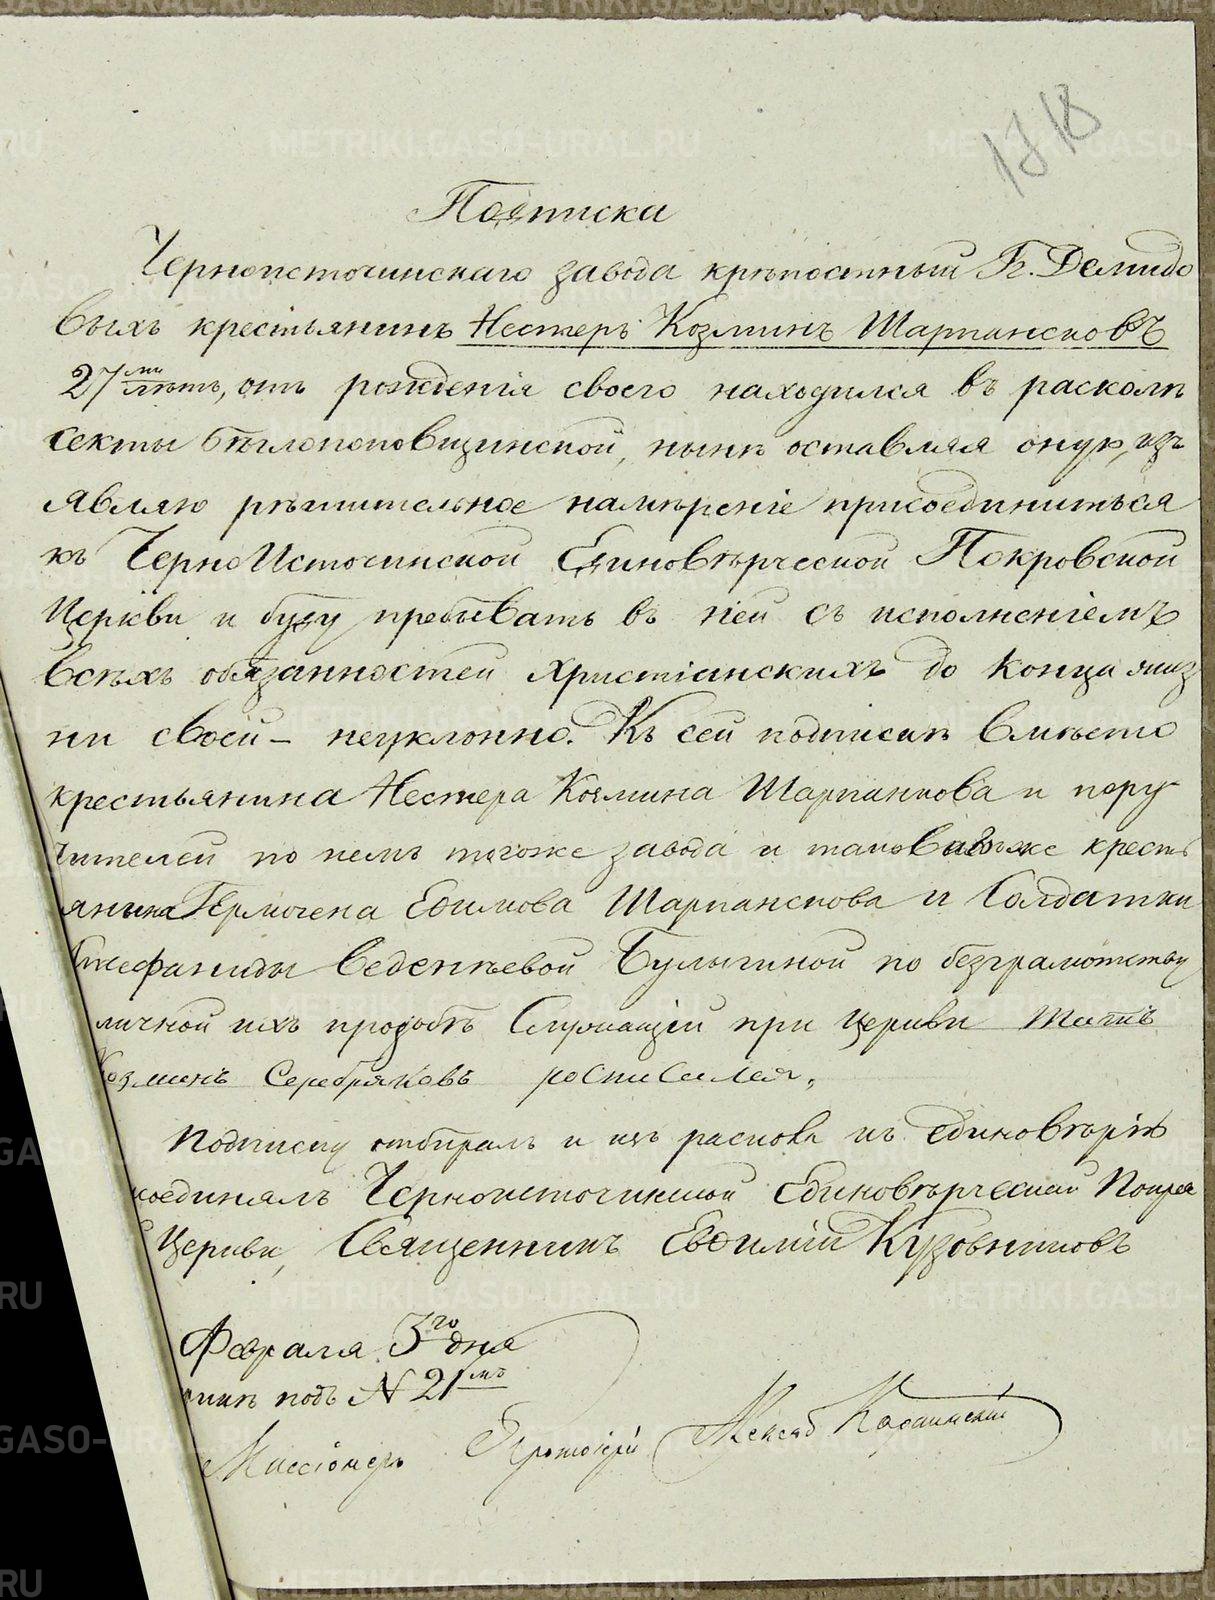 Подписка
Черноисточинскаго завода крѣпостный Гг. Демидо
выхъ крестьянинъ Нестеръ Козминъ Шарпансковъ
27ми лѣтъ, отъ рожденія своего находился въ расколѣ
секты бѣглопоповщинской, нынѣ оставляя оную, изъ
являю рѣшительное намѣреніе присоединиться
къ ЧерноИсточинской Единовѣрческой Покровской
Церкви и буду пребывать въ ней съ исполненіемъ
всѣхъ обязанностей христіанскихъ до конца жиз
ни своей – неуклонно. Къ сей подпискѣ вмѣсто
крестьянина Нестера Козмина Шарпанскова и пору
чителей по немъ тогоже завода и таковагоже кресть
янина Ермогена Ефимова Шарпанскова и Солдатки
Епифаниды Веденѣевой Булыгиной по безграмотству
личной ихъ прозьбѣ Служащій при церкви
Козминъ Серебряковъ росписался.
Подписку отбиралъ и изъ раскола къ единовѣрію
соединялъ Черноисточинской Единовѣрческой Покров
Церкви, Священникъ Евфимій Кузовниковъ
Февраля 3го дня
подъ N 21мъ
Миссіонеръ Протоіерей
METRIKI.GASO-URAL.RU